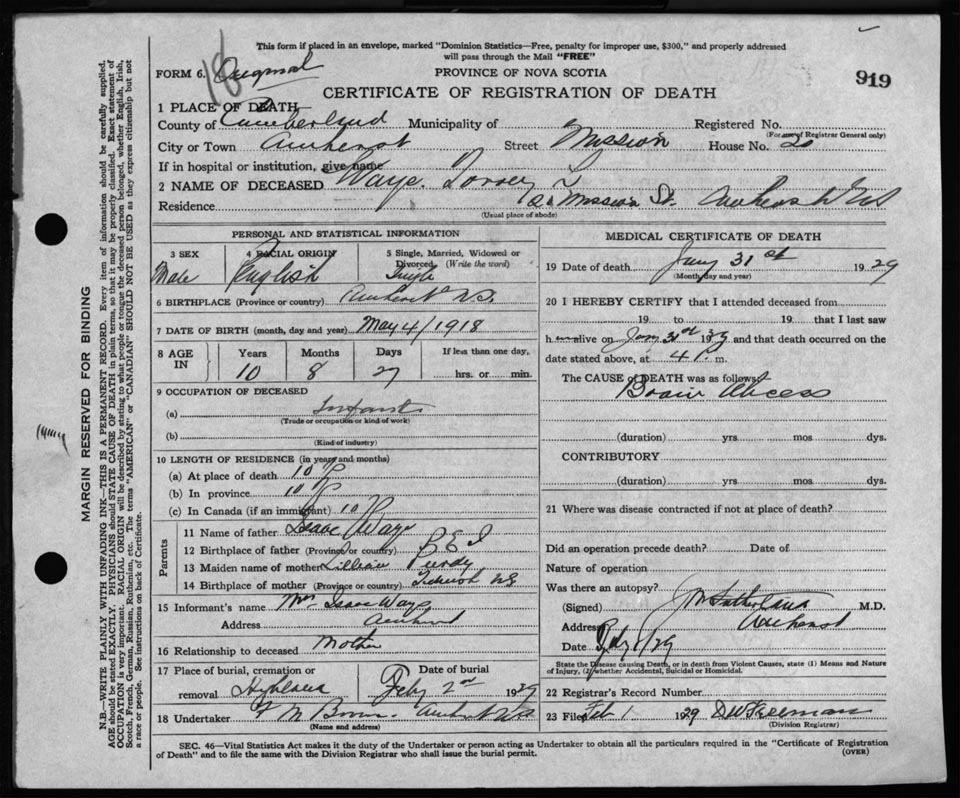 This form if placed in an envelope, marked "Dominion Statistics—Free, penalty for improper use, $300," and properly addressed
will pass through the Mail "FREE"
18
FORM 6. Original
PROVINCE OF NOVA SCOTIA
919
CERTIFICATE OF REGISTRATION OF DEATH
1 PLACE OF DEATH—
County of Cumberland Municipality of Registered No.
(For use of Registrar General only)
City or Town Amherst Street Mission House No. 20
If in hospital or institution, give name
2 NAME OF DECEASED Ways.
Residence 20 Mission St. Amherst
(Usual place of abode)
PERSONAL AND STATISTICAL INFORMATION
3 SEX Male
4 RACIAL ORIGIN English
5 Single, Married, Widowed or Divorced (Write the word) Single
6 BIRTHPLACE (Province or country) Amherst N.S.
7 DATE OF BIRTH (month, day and year) May 4/1918
8 AGE IN Years Months Days If less than one day,
10 8 27 hrs. or min.
9 OCCUPATION OF DECEASED
(a) Infant
(Trade or occupation or kind of work)
(b)
(Kind of industry)
10 LENGTH OF RESIDENCE (in years and months)
(a) At place of death 10
(b) In province 10
(c) In Canada (if an immigrant) 10
Parents
11 Name of father Isaac Ways
12 Birthplace of father (Province or country) P E I
13 Maiden name of mother Lillian Purdy
14 Birthplace of mother (Province or country)
15 Informant's name Mrs Isaac Ways
Address Amherst
16 Relationship to deceased Mother
17 Place of burial, cremation or removal Highland
Date of burial Feby 2nd 1929
18 Undertaker Amherst
(Name and address)
MEDICAL CERTIFICATE OF DEATH
19 Date of death Jany 31st 1929
(Month, day and year)
20 I HEREBY CERTIFY that I attended deceased from
19 to 19 that I last saw
h alive on Jan 31st 1929 and that death occurred on the
date stated above, at 4 P. m.
The CAUSE of DEATH was as follows
Brain Abcess
(duration) yrs. mos dys.
CONTRIBUTORY
(duration) yrs. mos dys.
21 Where was disease contracted if not at place of death?
Did an operation precede death? Date of
Nature of operation
Was there an autopsy?
(Signed) Sutherland M.D.
Address Amherst
Date Feby 1/29
State the Disease causing Death, or in death from Violent Causes, state (1) Means and Nature
of Injury, (2) whether Accidental, Suicidal or Homicidal.
22 Registrar's Record Number
23 Filed Feb 1 1929 D W Freeman
(Division Registrar)
SEC. 46—Vital Statistics Act makes it the duty of the Undertaker or person acting as Undertaker to obtain all the particulars required in the "Certificate of Registration
of Death" and to file the same with the Division Registrar who shall issue the burial permit.
(OVER)
MARGIN RESERVED FOR BINDING
N.B.—WRITE PLAINLY WITH UNFADING INK—THIS IS A PERMANENT RECORD. Every item of information should be carefully supplied.
AGE should be stated EXACTLY. PHYSICIANS should STATE CAUSE OF DEATH in plain terms, so that it may be properly classified. Exact statement of
OCCUPATION is very important. RACIAL ORIGIN will be described by stating to what people or tongue the deceased person belonged, whether English, Irish,
Scotch, French, German, Russian, Ruthenian, etc. The terms "AMERICAN" or "CANADIAN" SHOULD NOT BE USED as they express citizenship but not
a race or people. See instructions on back of Certificate.